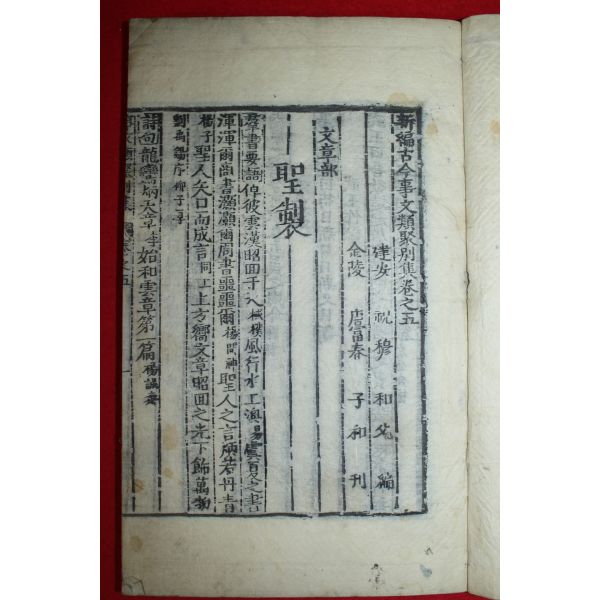 新編古今事文類聚別集卷之五
建安 祝穆 和父 編
金陵 唐富春 子和 刊
文章部
聖製
羣書要語倬彼雲漢昭回于天棫樸風行水上渙易虞夏之書
渾渾爾尚書灝灝爾周書噩噩爾楊問神聖人之言炳若丹青
楊子聖人矢口而成言同上上方嚮文章昭回之光下飾萬物
劉禹錫序柳子厚
詩句龍鸞炳天章李始和雲章第一篇楊誠齋